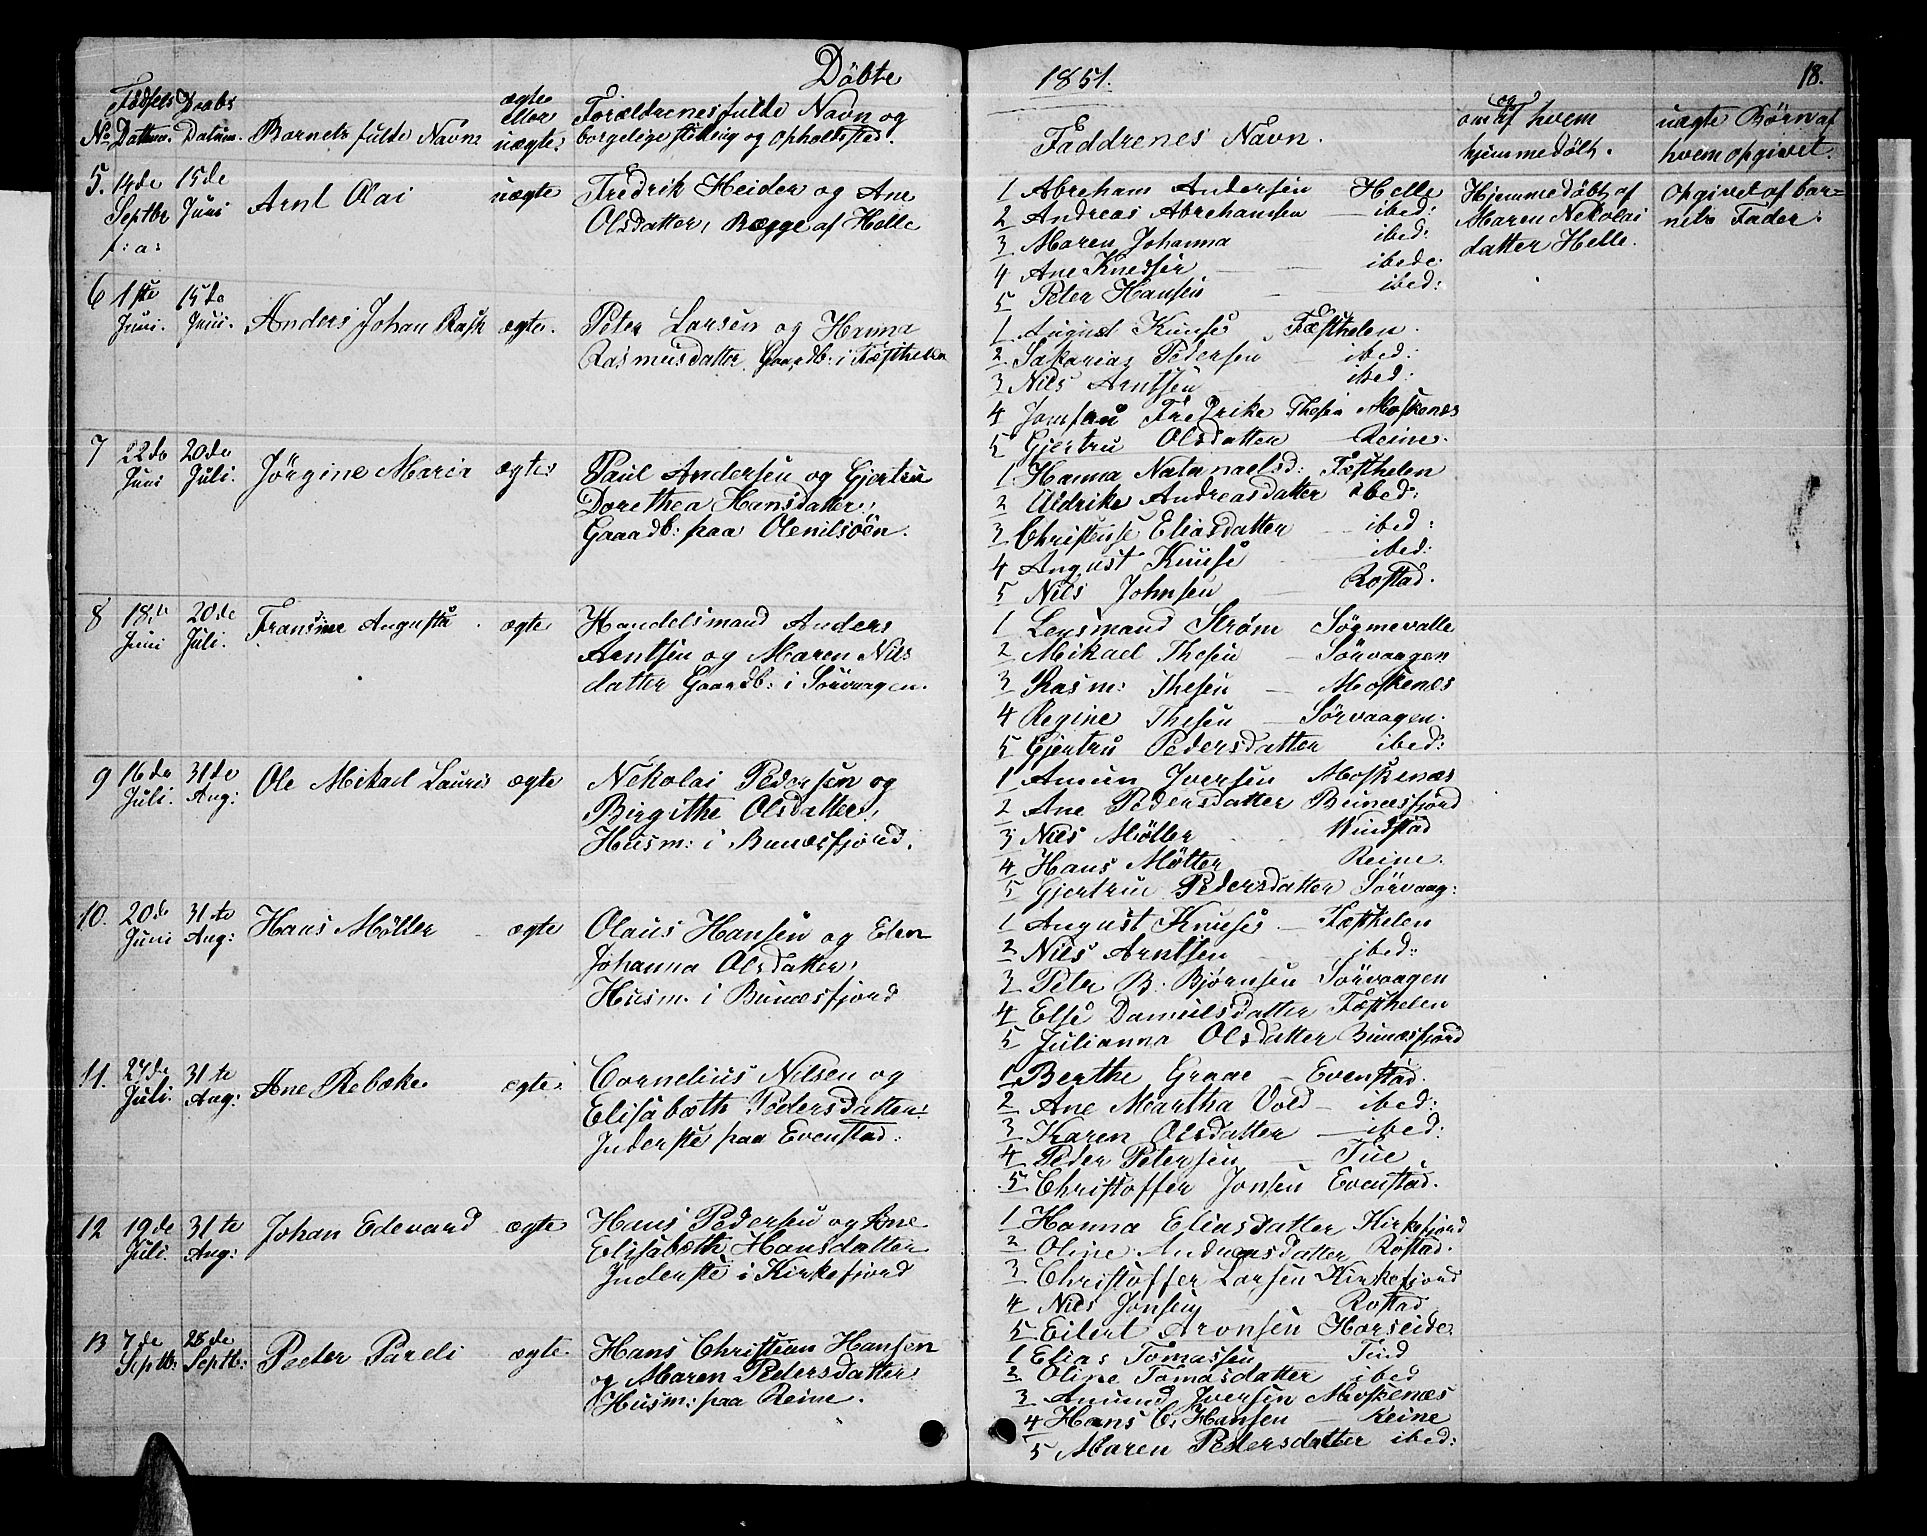 Döbte
1851.
18.
No
Fødsels Datum.
Daabs Datum.
Barnets fulde Navn
ægte eller uægte.
Forældrenes fulde Navn og
borgelige stilling og opholdsted.
Faddrenes Navn.
om og af hvem
hjemmedöbt.
uægte Børn af
hvem opgivet.
5. 14de Septbr f: a: 15de Juni Arnt Olai uægte
Fredrik Heider og Ane
Olsdatter, Begge af Helle
1 Abreham Andersen Helle
2 Andreas Abrehamsen ibed:
3 Maren Johanna ibed:
4 Ane ibed:
5 Peter Hansen ibed:
Hjemmedöbt af
Maren Nekolai
datter Helle.
opgivet af bar-
nets Fader.
6 1ste Juni. 15de Juni. Anders Johan Rask ægte.
Peter Larsen og Hanna
Rasmusdatter Gaardb: i Fæsthelen
1 August Knuse Fæsthelen.
2 Sakarias Pedersen ibed:
3 Nils Arntsen ibed:
4 Jomfru Fredrike Thesen Moskenes
5 Gjertru Olsdatter Reine.
7 22de Juni 20de Juli. Jørgine Maria ægte
Paul Andersen og Gjertru
Dorethea Hansdatter,
Gaardb: paa Olenilsöen.
1 Hanna Natanaelsd: Fæsthelen
2 Uldrike Andreasdatter ibed:
3 Christense Eliasdatter ibed:
4 August Knuse ibed:
5 Nils Johnsen Rostad.
8 18de Juni 20de Juli. Fransine Augusta ægte
Handelsmand Anders
Arntsen og Maren Nils
datter Gaardb: i Sörvaagen.
1 Lensmand Strøm
2 Mikael Thesen Sörvaagen
3 Rasm: Thesen Moskenes
4 Regine Thesen Sörvaagen.
5 Gjertru Pedersdatter ibed:
9 16de Juli. 31de Aug: Ole Mikael Lauris ægte
Nekolai Pedersen og
Birgithe Olsdatter,
Husm: i Bunæsfjord.
1 Amun Iversen Moskenæs
2 Ane Pedersdatter Bunæsfjord
3 Nils Møller Windstad
4 Hans Møller Reine.
5 Gjertru Pedersdatter Sörvaag:
10. 20de Juni 31te Aug: Hans Møller ægte
Olaus Hansen og Elen
Johanna Olsdatter,
Husm. i Bunæsfjord
1 August Knuse Fæsthelen
2 Nils Arntsen ibed:
3 Peter B. Bjørnsen Sörvaagen
4 Else Danielsdatter Fæsthelen
5 Julianna Olsdatter Bunæsfjord
11. 27de Juli. 31te Aug: Ane Rebæke ægte
Cornelius Nilsen og
Elisabæth Pedersdatter
Inderste paa Evenstad.
1 Berthe Graae Evenstad.
2 Ane Martha Vold ibed:
3 Karen Olsdatter ibed:
4 Peder Petersen
5 Christoffer Jonsen Evenstad.
12 19de Juli. 31te Aug: Johan Edevard ægte
Hans Pedersen og Ane
Elisabæth Hansdatter
Inderste i Kirkefjord
1 Hanna Eliasdatter Kirkefjord
2 Oline Andreasdatter Rostad.
3 Christoffer Larsen Kirkefjord
4 Nils Jonsen Rostad
5 Eilert Aronsen Horseide
13 7de Septb: 28de Septb: Peeter Pareli ægte
Hans Christian Hansen
og Maren Pedersdatter
Husm: paa Reine.
1 Elias Tomassen Tind
2 Oline Tomasdatter ibed
3 Amund Iversen Moskenæs
4 Hans C. Hansen Reine
5 Maren Pedersdatter ibed: